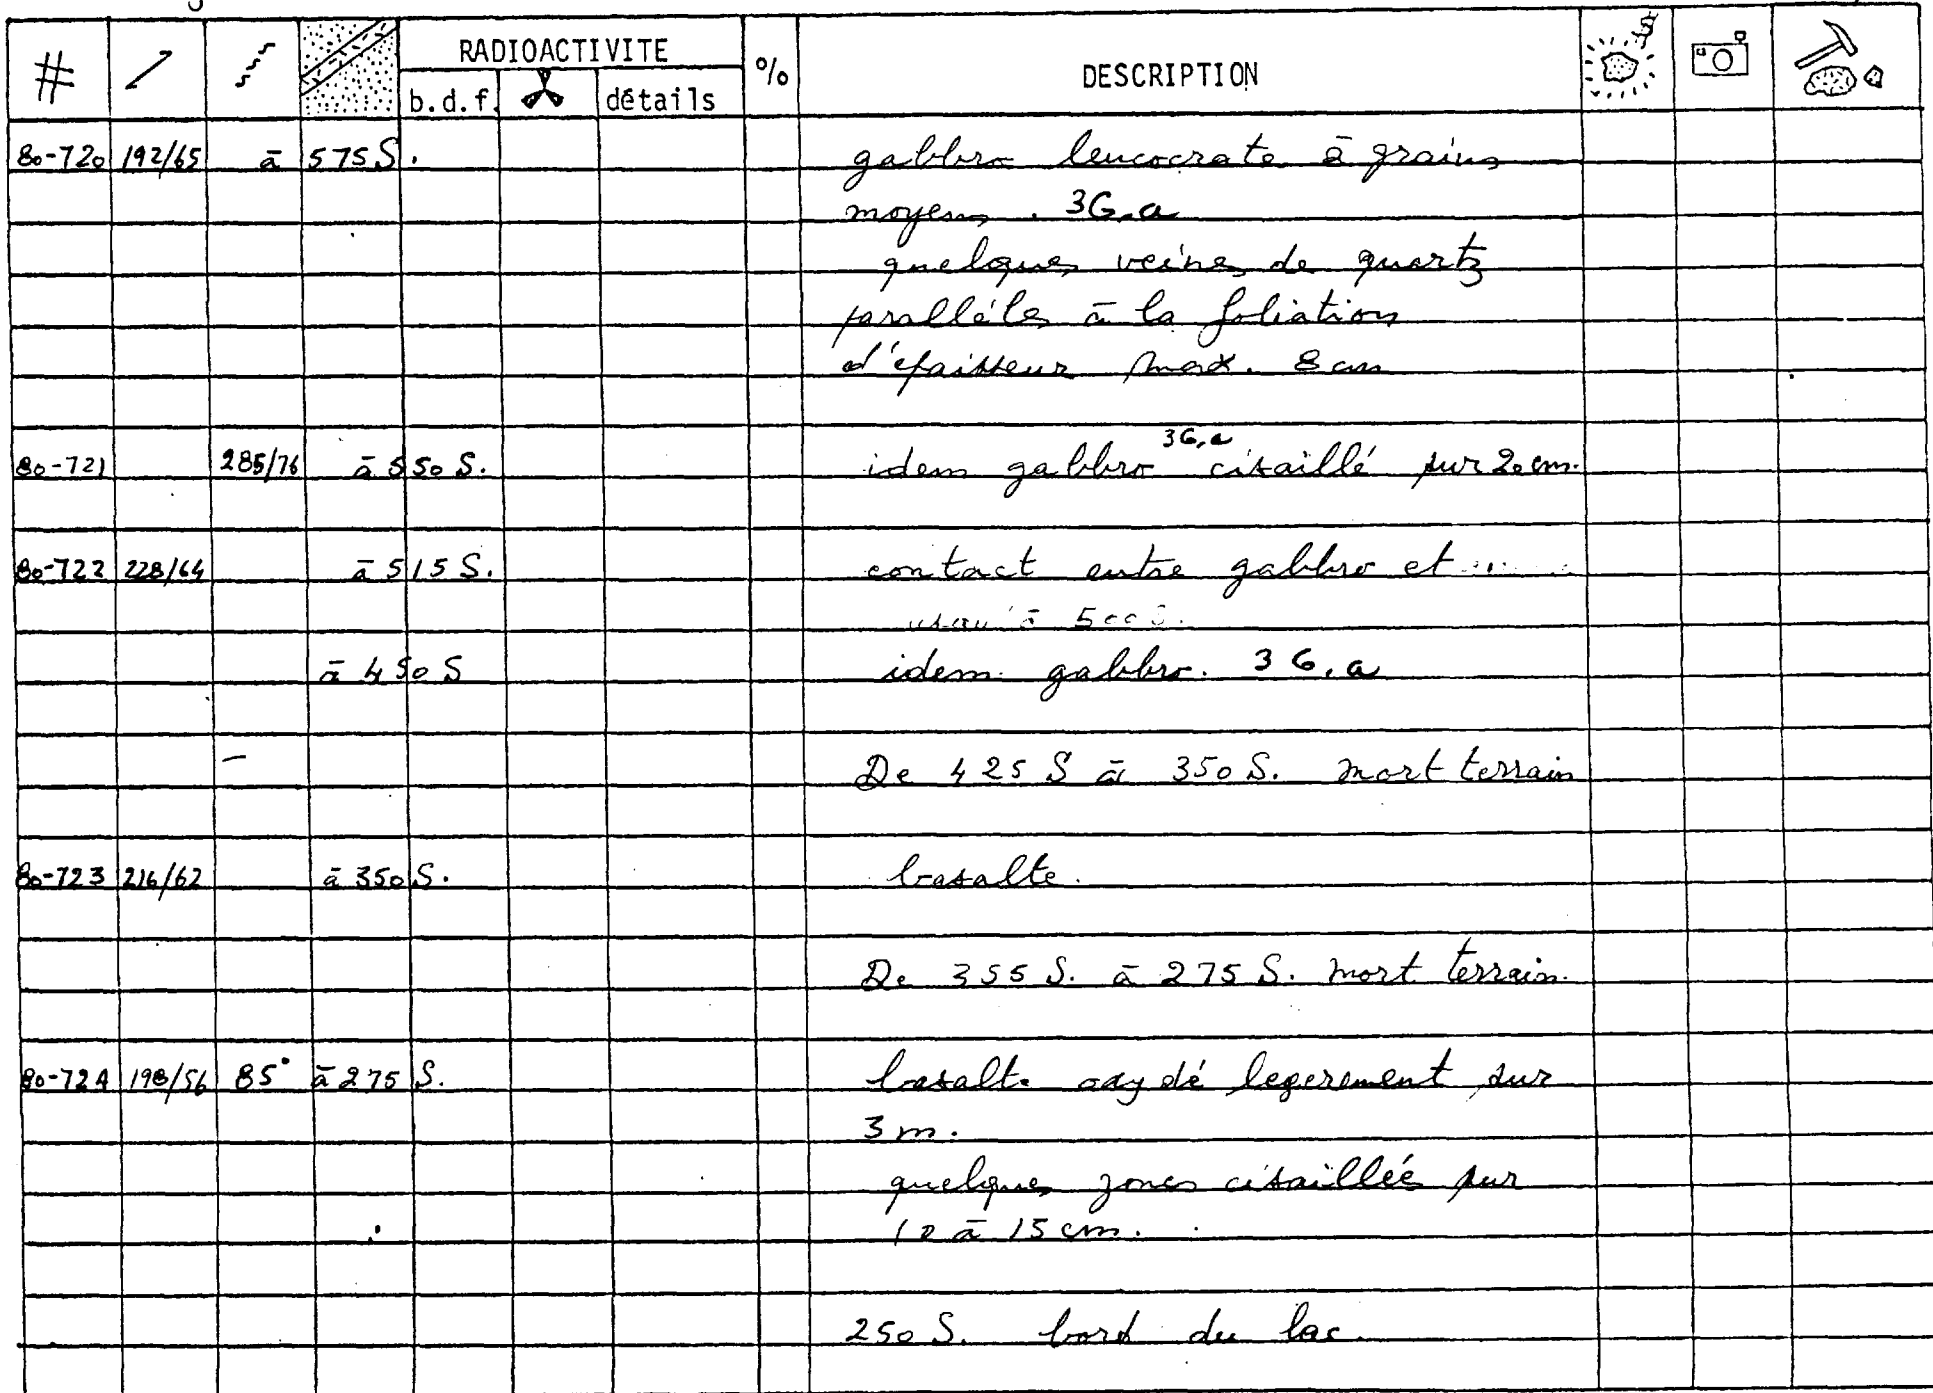 # RADIOACTIVITE % DESCRIPTION
b.d.f. détails
80-720 192/65 à 575 S. gabbro leucocrate à grains
moyens. 3G,a
quelques veines de quartz
parallèles à la foliation
d'épaisseur max. 8 cm
3G,a
80-721 285/76 à 550 S. idem gabbro cisaillé sur 20 cm.
80-722 228/64 à 515 S. contact entre gabbro et
à 500 S.
à 450 S idem gabbro. 3G,a
De 425 S à 350 S. mort terrain
80-723 216/62 à 350 S. basalte.
De 355 S. à 275 S. mort terrain.
80-724 198/56 85° à 275 S. basalte oxydé legerement sur
3 m.
quelques zones cisaillées sur
10 à 15 cm.
250 S. bord du lac.